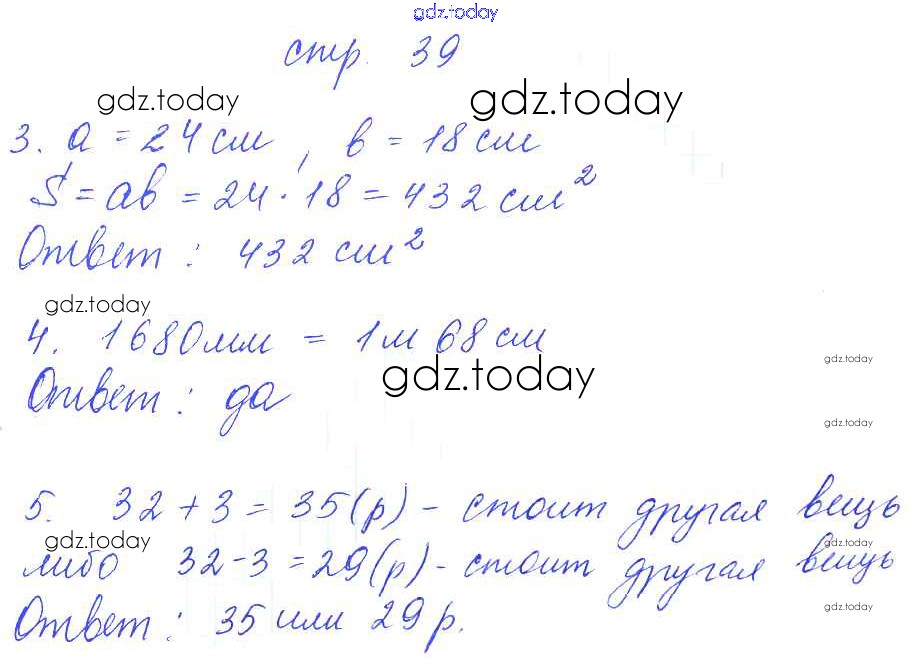 gdz.today
стр. 39
gdz.today gdz.today
3. a = 24 см, b = 18 см
S = ab = 24 · 18 = 432 см²
Ответ: 432 см²
gdz.today
4. 1680 мм = 1 м 68 см
gdz.today
gdz.today
Ответ: да
gdz.today
5. 32 + 3 = 35 (р) - стоит другая вещь
gdz.today
gdz.today
либо 32 - 3 = 29 (р) - стоит другая вещь
gdz.today
Ответ: 35 или 29 р.